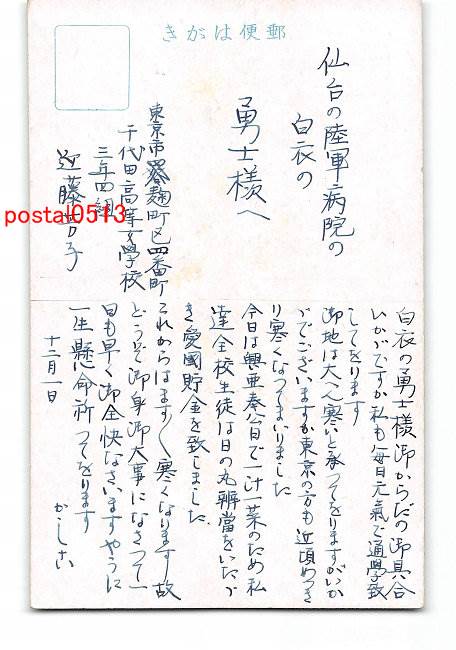 きがは便郵
仙台の陸軍病院の
白衣の
勇士様へ
東京市麹町区四番町
千代田高等女学校
三年四組
近藤
子
postal0513
白衣の勇士様御からだの御具合
いかがですか私も毎日元氣で通學致
してをります
御地は大へん寒いと承つてをりますがいかゞ
でございますか東京の方も近頃めつき
り寒くなつてまいりました
今日は興亜奉公日で一汁一菜のため私
達全校生徒は日の丸辨當をいたゞ
き愛國貯金を致しました
これからはます〱寒くなります故
どうぞ御身御大事になさつて一
日も早く御全快なさいますやうに
一生懸命祈つてをります
かしこ
十二月一日